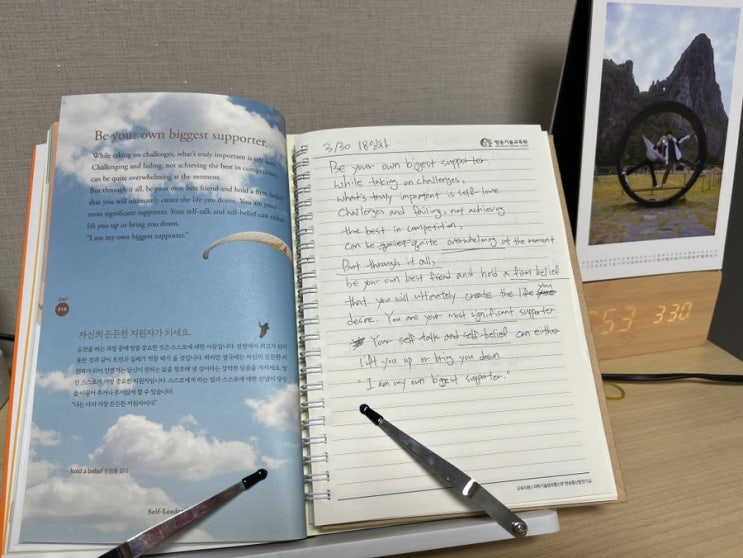 Be your own biggest supporter.
While taking on challenges, what's truly important is self-love.
Challenging and failing, not achieving the best in competition,
can be quite overwhelming at the moment.
But through it all, be your own best friend and hold a firm belief
that you will ultimately create the life you desire. You are your
most significant supporter. Your self-talk and self-belief can either
lift you up or bring you down.
"I am my own biggest supporter."
DAY
018
자신의 든든한 지원자가 되세요.
도전을 하는 과정 중에 정말 중요한 것은 스스로에 대한 사랑입니다. 경쟁에서 최고가 되지
못한 것과 같이 도전과 실패가 벅찰 때가 올 것입니다. 하지만
"나는 나의 가장 든든한 지원자이다."
hold a belief 믿음을 갖다
Self-Leader
3/30 18일차
방송기술교육원
Be your own biggest supporter.
While taking on challenges,
what's truly important is self-love.
Challenges and failing, not achieving
the best in competition,
can be quite overwhelming at the moment
But through it all,
be your own best friend and hold a firm belief
that you will ultimately create the life you
desire. You are your most significant supporter
Your self talk and self belief can either
lift you up or bring you down
"I am my own bigest supporter."
교육지원 | 과학기술정보통신부 방송통신발전기금
5:3 330